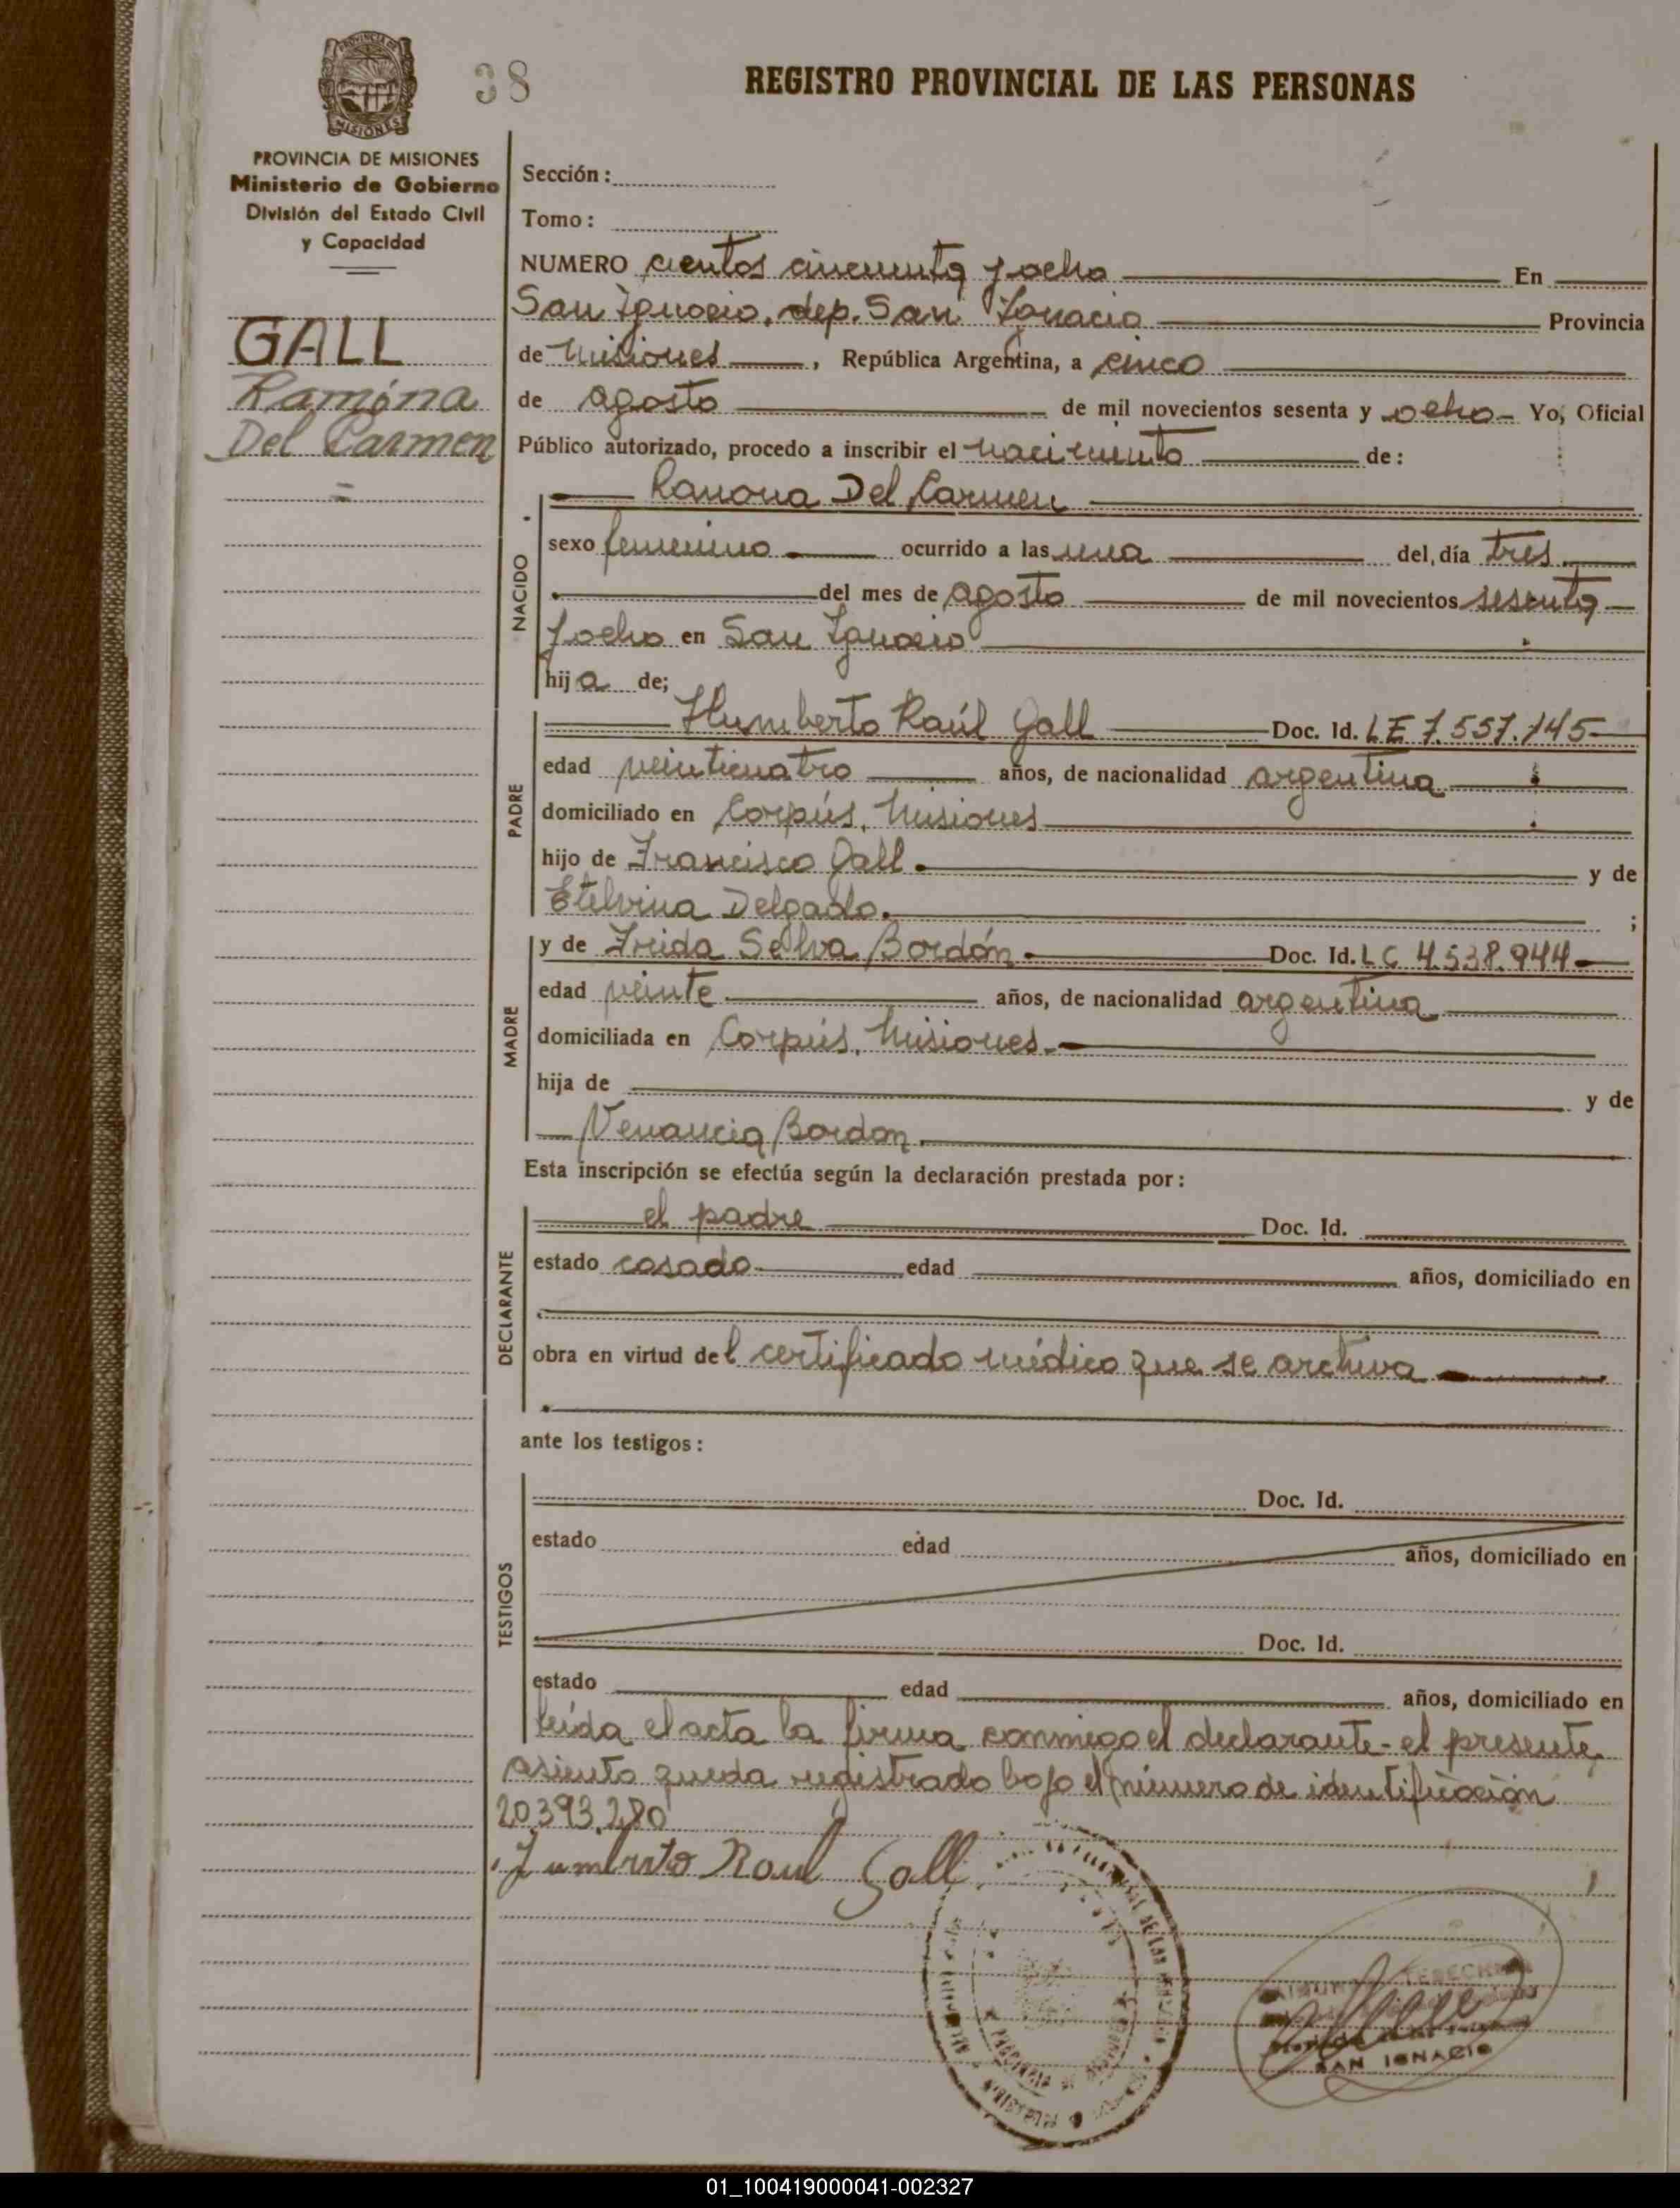 38
REGISTRO PROVINCIAL DE LAS PERSONAS
PROVINCIA DE MISIONES
MISIONES
PROVINCIA DE MISIONES
Ministerio de Gobierno
División del Estado Civil
y Capacidad
GALL
Ramóna
Del Carmen
Sección:
Tomo:
NUMERO cientos cincuenta y ocho En
San Ignacio, dep. San Ignacio Provincia
de Misiones, República Argentina, a cinco
de agosto de mil novecientos sesenta y ocho Yo, Oficial
Público autorizado, procedo a inscribir el nacimiento de:
NACIDO
Ramona Del Carmen
sexo femenino ocurrido a las una del día tres
del mes de agosto de mil novecientos sesenta
y ocho en San Ignacio
hija de;
PADRE
Humberto Raúl Gall Doc. Id. LE 7.557.145
edad veinticuatro años, de nacionalidad argentina
domiciliado en Corpús, Misiones
hijo de Francisco Gall y de
Etelvina Delgado. ;
MADRE
y de Frida Selva Bordón Doc. Id. LC 4.538.944
edad veinte años, de nacionalidad argentina
domiciliada en Corpús, Misiones.
hija de y de
Venancia Bordon
Esta inscripción se efectúa según la declaración prestada por:
DECLARANTE
el padre Doc. Id.
estado casado edad años, domiciliado en
obra en virtud del certificado médico que se archiva
ante los testigos:
TESTIGOS
Doc. Id.
estado edad años, domiciliado en
Doc. Id.
estado edad años, domiciliado en
leída el acta la firma conmigo el declarante - el presente
asiento queda registrado bajo el número de identificación
20.393.280
Humberto Raul Gall
PROVINCIA DE MISIONES
SAN IGNACIO
01_100419000041-002327